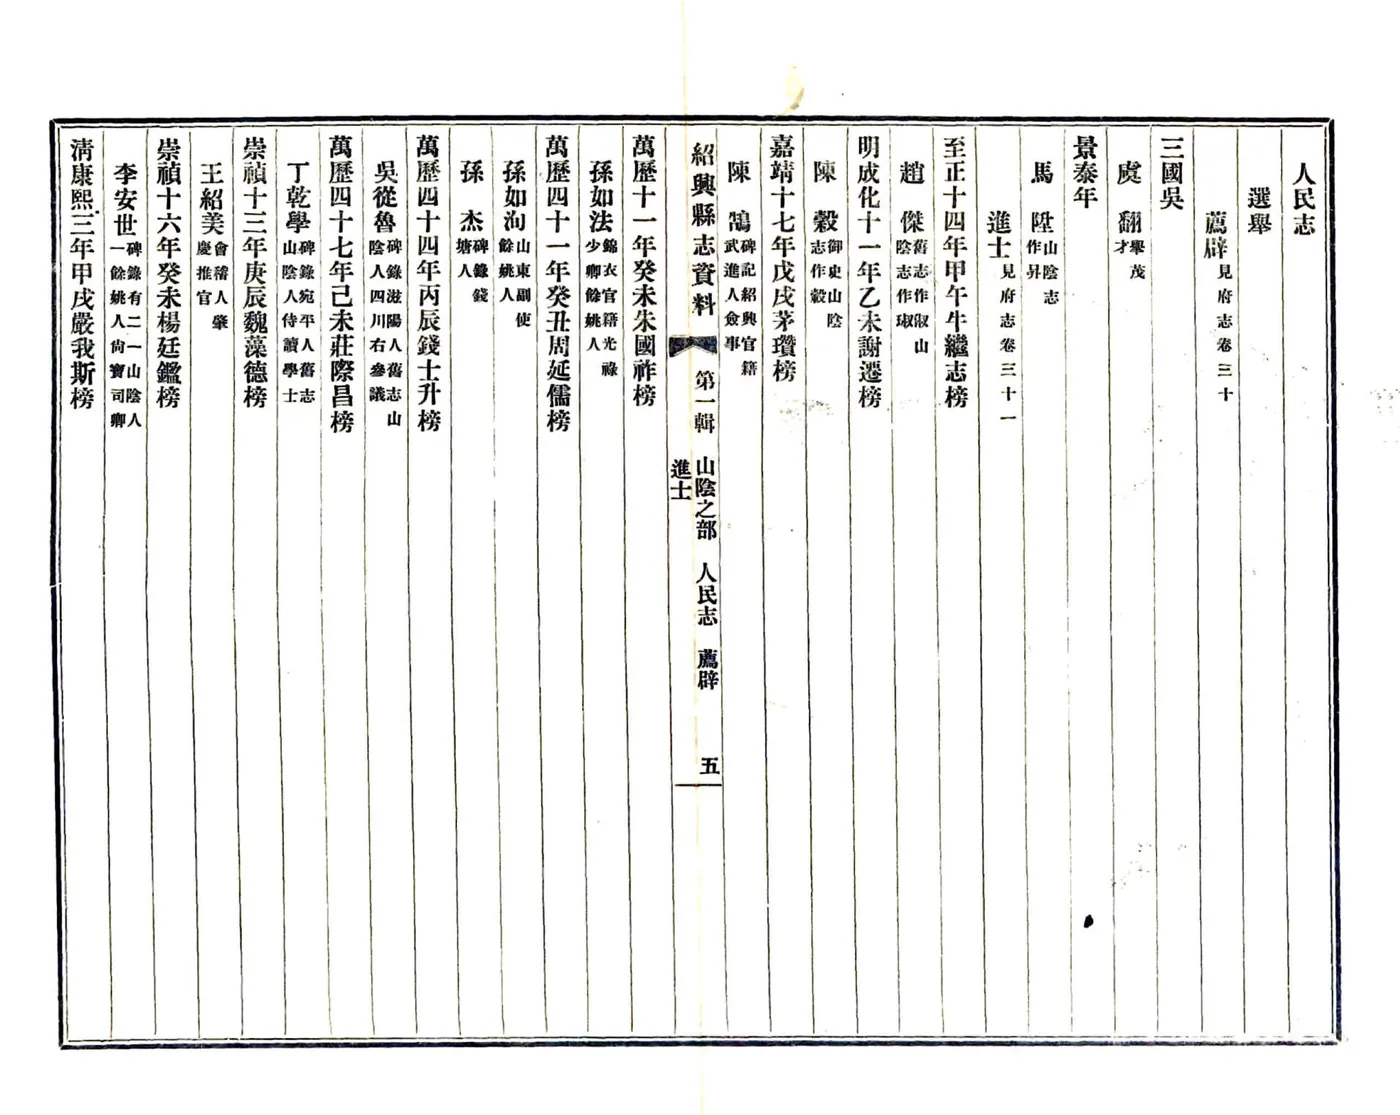 人民志
選舉
薦辟見府志卷三十
三國吳
虞翻舉茂才
景泰年
馬陞山陰志作昇
進士見府志卷三十一
至正十四年甲午牛繼志榜
趙傑舊志作俶山陰志作琡
明成化十一年乙未謝遷榜
陳轂御史山陰志作穀
嘉靖十七年戊戌茅瓚榜
陳鵠碑記紹興官籍武進人僉事
紹興縣志資料 第一輯 山陰之部 人民志 薦辟 進士 五
萬歷十一年癸未朱國祚榜
孫如法錦衣官籍光祿少卿餘姚人
萬歷四十一年癸丑周延儒榜
孫如洵山東副使餘姚人
孫杰碑錄錢塘人
萬歷四十四年丙辰錢士升榜
吳從魯碑錄滋陽人舊志山陰人四川右參議
萬歷四十七年己未莊際昌榜
丁乾學碑錄宛平人舊志山陰人侍讀學士
崇禎十三年庚辰魏藻德榜
王紹美會稽人肇慶推官
崇禎十六年癸未楊廷鑑榜
李安世碑錄有二一山陰人一餘姚人尙寶司卿
淸康熙三年甲戌嚴我斯榜